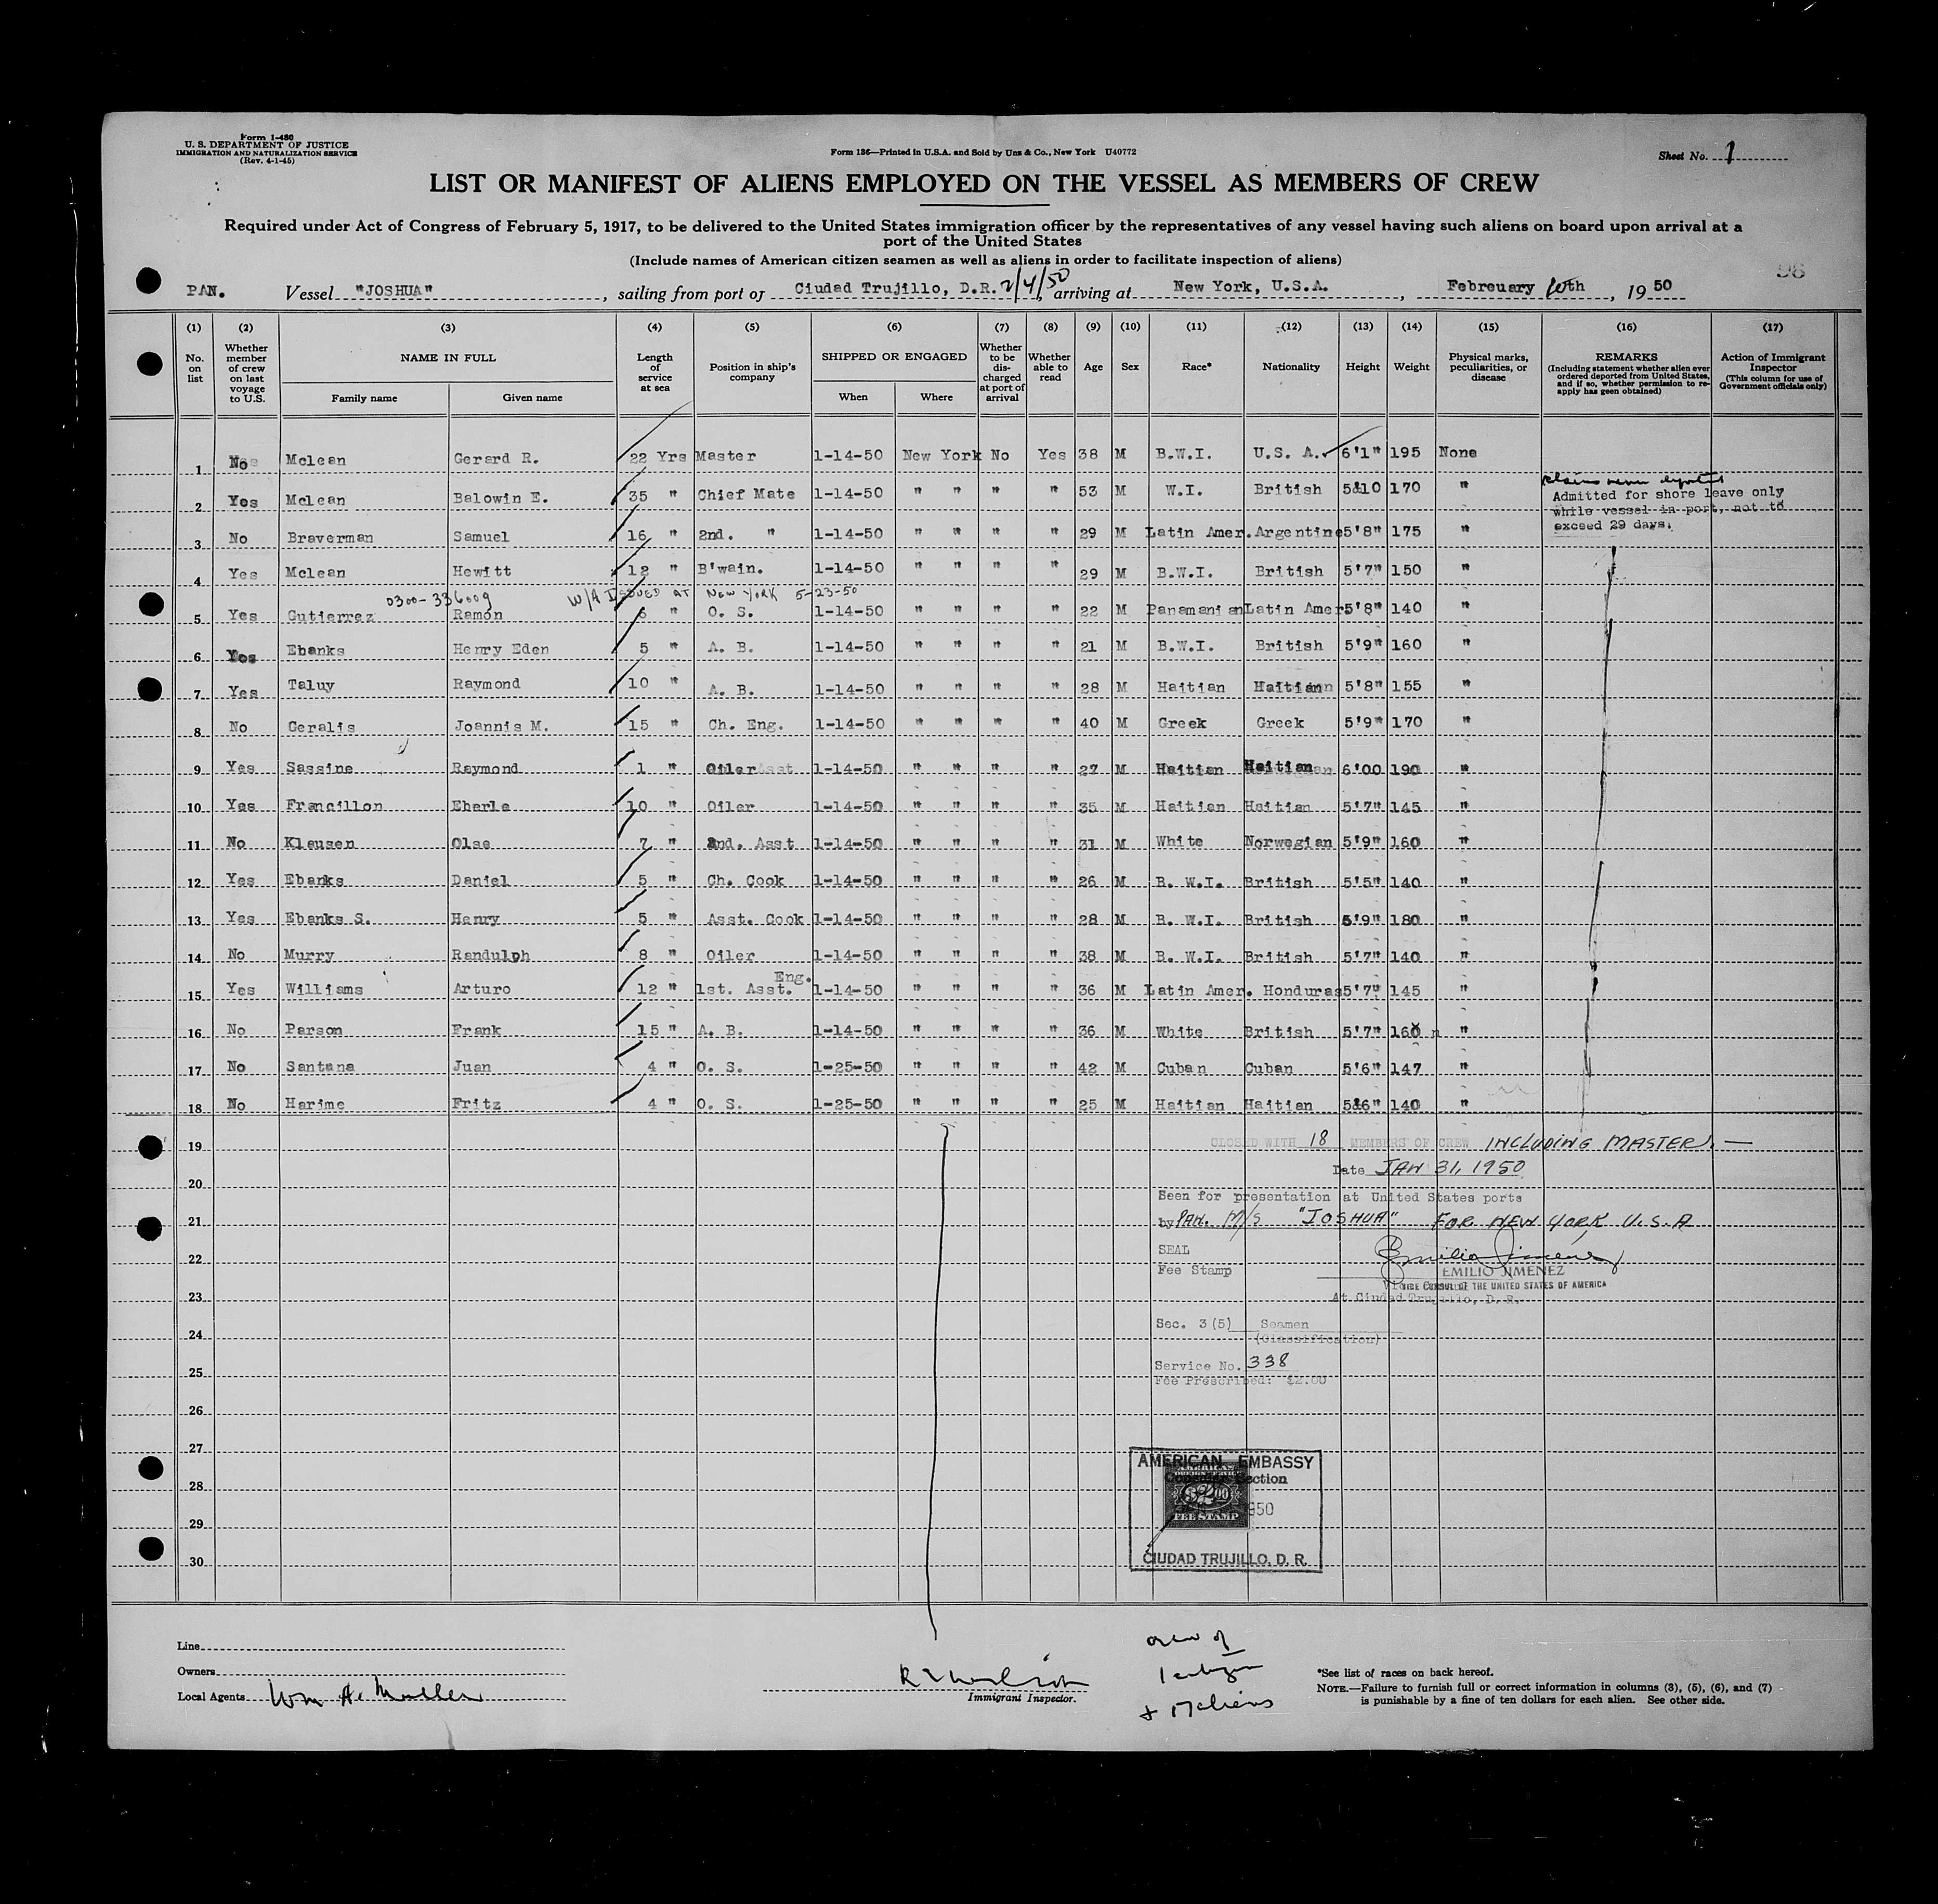 Form I-480
U. S. DEPARTMENT OF JUSTICE
IMMIGRATION AND NATURALIZATION SERVICE
(Rev. 4-1-45)
Form 136—Printed in U.S.A. and Sold by Unz & Co., New York U40772
Sheet No. 1
LIST OR MANIFEST OF ALIENS EMPLOYED ON THE VESSEL AS MEMBERS OF CREW
Required under Act of Congress of February 5, 1917, to be delivered to the United States immigration officer by the representatives of any vessel having such aliens on board upon arrival at a
port of the United States
(Include names of American citizen seamen as well as aliens in order to facilitate inspection of aliens)
98
PAN. Vessel "JOSHUA", sailing from port of Ciudad Trujillo, D.R. 2/4/50, arriving at New York, U.S.A., Febreuary 10th, 1950
(1) (2) (3) (4) (5) (6) (7) (8) (9) (10) (11) (12) (13) (14) (15) (16) (17)
No. on list
Whether member of crew on last voyage to U.S.
NAME IN FULL
Family name
Given name
Length of service at sea
Position in ship's company
SHIPPED OR ENGAGED
When
Where
Whether to be discharged at port of arrival
Whether able to read
Age
Sex
Race*
Nationality
Height
Weight
Physical marks, peculiarities, or disease
REMARKS
(Including statement whether alien ever ordered deported from United States, and if so, whether permission to re-apply has geen obtained)
Action of Immigrant Inspector
(This column for use of Government officials only)
1 No Mclean Gerard R. 22 Yrs Master 1-14-50 New York No Yes 38 M B.W.I. U.S. A. 6'1" 195 None
2 Yes Mclean Balowin E. 35 " Chief Mate 1-14-50 " " " " 53 M W.I. British 5&10 170 "
Admitted for shore leave only
while vessel in port, not to
exceed 29 days.
3 No Braverman Samuel 16 " 2nd. " 1-14-50 " " " " 29 M Latin Amer. Argentine 5'8" 175 "
4 Yes Mclean Hewitt 12 " B'wain. 1-14-50 " " " " 29 M B.W.I. British 5'7" 150 "
0300-336009 W/A ISSUED AT NEW YORK 5-23-50
5 Yes Gutierrez Ramon 6 " O. S. 1-14-50 " " " " 22 M Panamanian Latin Amer 5'8" 140 "
6 Yes Ebanks Henry Eden 5 " A. B. 1-14-50 " " " " 21 M B.W.I. British 5'9" 160 "
7 Yes Taluy Raymond 10 " A. B. 1-14-50 " " " " 28 M Haitian Haitian 5'8" 155 "
8 No Geralis Joannis M. 15 " Ch. Eng. 1-14-50 " " " " 40 M Greek Greek 5'9" 170 "
9 Yes Sassine Raymond 1 " Oiler 1-14-50 " " " " 27 M Haitian Haitian 6'00 190 "
10 Yes Francillon Eberle 10 " Oiler 1-14-50 " " " " 35 M Haitian Haitian 5'7" 145 "
11 No Klausen Olae 7 " 2nd. Asst 1-14-50 " " " " 31 M White Norwegian 5'9" 160 "
12 Yes Ebanks Daniel 5 " Ch. Cook 1-14-50 " " " " 26 M B. W.I. British 5'5" 140 "
13 Yes Ebanks S. Henry 5 " Asst. Cook 1-14-50 " " " " 28 M B. W.I. British 5'9" 180 "
14 No Murry Randulph 8 " Oiler 1-14-50 " " " " 38 M B. W.I. British 5'7" 140 "
15 Yes Williams Arturo 12 " 1st. Asst. Eng. 1-14-50 " " " " 36 M Latin Amer. Honduras 5'7" 145 "
16 No Parson Frank 15 " A. B. 1-14-50 " " " " 36 M White British 5'7" 160 "
17 No Santana Juan 4 " O. S. 1-25-50 " " " " 42 M Cuban Cuban 5'6" 147 "
18 No Harime Fritz 4 " O. S. 1-25-50 " " " " 25 M Haitian Haitian 5&6" 140 "
19 CLOSED WITH 18 MEMBERS OF CREW INCLUDING MASTER.—
Date JAN 31, 1950
20
Seen for presentation at United States ports
21 by PAN. M/S "JOSHUA" FOR NEW YORK U.S.A
SEAL Emilio Jimenez
22
Fee Stamp EMILIO JIMENEZ
VICE CONSUL OF THE UNITED STATES OF AMERICA
23 At Ciudad Trujillo, D. R.
Sec. 3(5) Seamen
24 (Classification)
Service No. 338
25
Fee Prescribed: $2.00
26
27
AMERICAN EMBASSY
28 Consular Section
$2.00
1950
FEE STAMP
29
30
CIUDAD TRUJILLO, D. R.
Line
Owners
Local Agents Wm A. Muller
Immigrant Inspector.
crew of
1 citizen
+ 17 aliens
*See list of races on back hereof.
NOTE.—Failure to furnish full or correct information in columns (3), (5), (6), and (7)
is punishable by a fine of ten dollars for each alien. See other side.